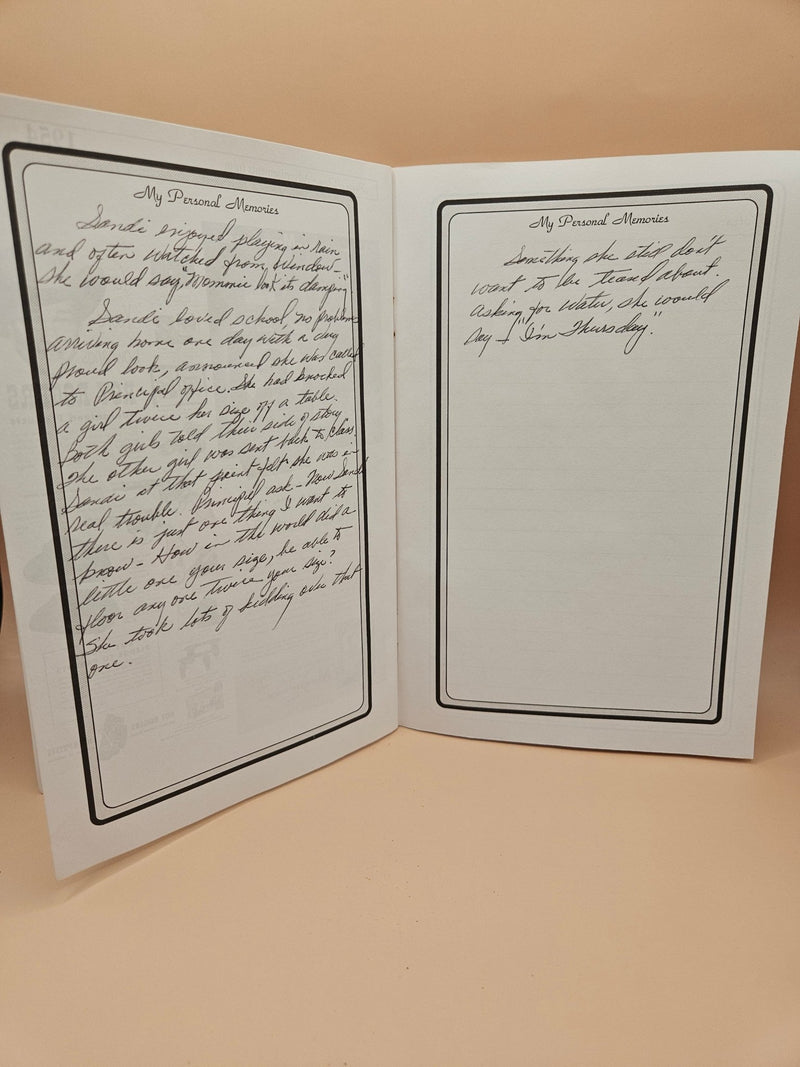 1954
My Personal Memories
Sandi enjoyed playing in rain
and often watched from window -
she would say, "Mommie look its damping."
Sandi loved school, no problems
arriving home one day with a
proud look, announced she was called
to Principal office. She had knocked
a girl twice her size off a table.
Both girls told their side of story
The other girl was sent back to class.
Sandi at that point felt she was in
real trouble. Principal ask - Now Sandi
there is just one thing I want to
know - How in the world did a
little one your size, be able to
floor any one twice your size?
She took lots of kidding over that
one.
My Personal Memories
Something she still don't
want to be teased about.
asking for water, she would
say - "I'm Thursday."